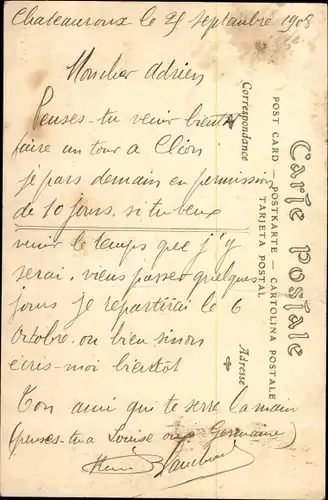 Chateauroux le 25 septembre 1908
Mon cher Adrien
Penses-tu venir bientot
faire un tour a Clion
je pars demain en permission
de 10 jours. si tu veux
venir le temps que j'y
serai, viens passer quelques
jours je repartirai le 6
Octobre. ou bien sinon
écris-moi bientôt
Ton ami qui te serre la main
(penses-tu a Louise ou Germaine)
Carte Postale
POST CARD — POSTKARTE — CARTOLINA POSTALE
TARJETA POSTAL
Correspondance
Adresse